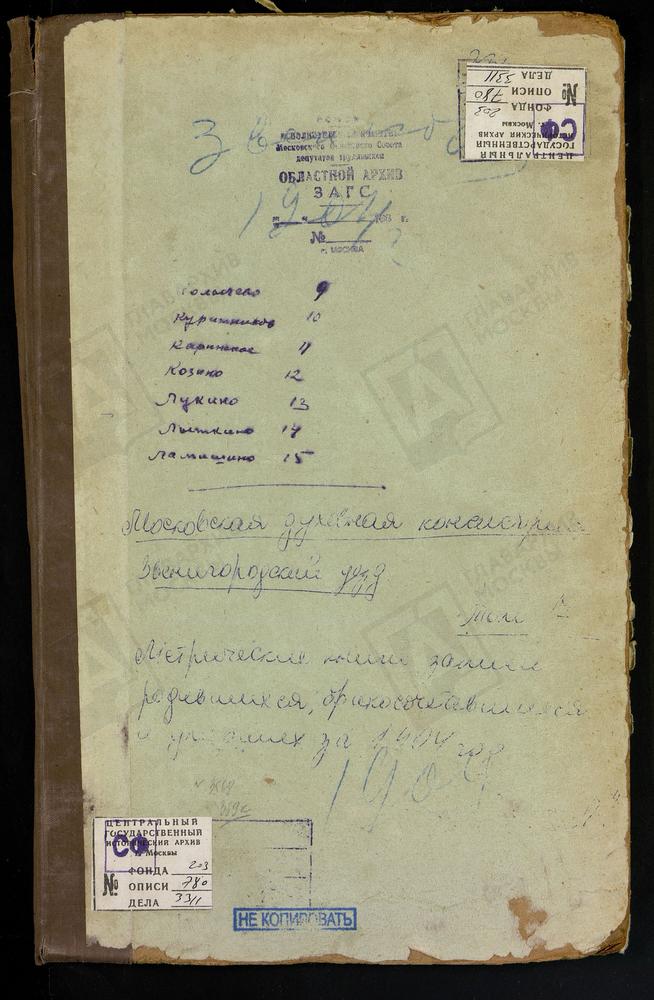 ДЕЛА 3311
ОПИСИ 780
№ ФОНДА 203
г. Москвы
ИСТОРИЧЕСКИЙ АРХИВ
ГОСУДАРСТВЕННЫЙ
ЦЕНТРАЛЬНЫЙ
СФ
Московского Областного Совета
депутатов трудящихся
ОБЛАСТНОЙ АРХИВ
ЗАГС
1904
г.
№
г. МОСКВА
9
Куртниково 10
Каринское 11
Козино 12
Лукино 13
Лыткино 14
Ламишино 15
Московская духовная консистория
Звенигородский уезд
Том
Метрические книги записи
родившихся, бракосочетавшихся
и умерших за 1904 год
1904
ЦЕНТРАЛЬНЫЙ
ГОСУДАРСТВЕННЫЙ
ИСТОРИЧЕСКИЙ АРХИВ
г. Москвы
СФ
ФОНДА 203
№ ОПИСИ 780
ДЕЛА 3311
НЕ КОПИРОВАТЬ
ГЛАВАРХИВ
МОСКВЫ